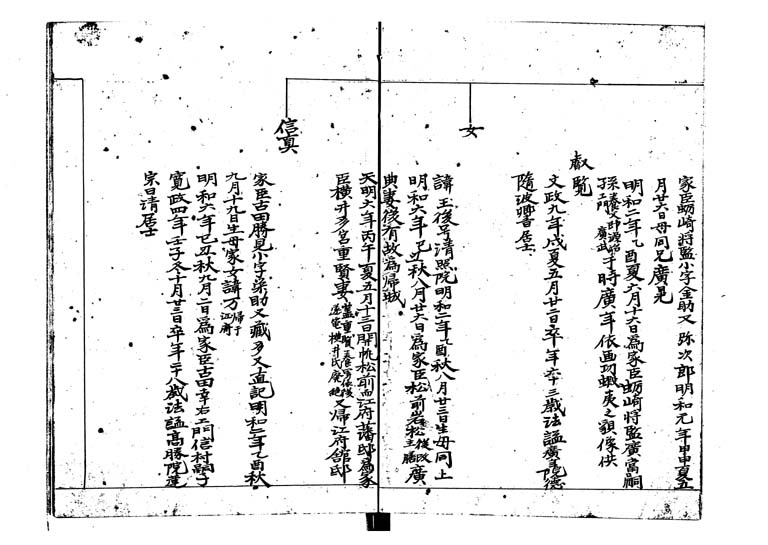 家臣蛎崎将監小字金助又弥次郎明和元年甲申夏五
月廿六日母同兄廣晃
明和二年乙酉夏六月十六日為家臣蛎崎将監廣當嗣
孫 時廣年依画功蝦夷之額像供
叡覧
文政九年戌夏五月廿二日卒年六十三歳法謚廣 院徳
隨波卿香居士
女
諱玉後号清照院明和二年乙酉秋八月廿三日生母同上
明和六年己丑秋八月廿六日為家臣松前岩松後改主膳廣
典妻後有故為帰城
天明六年丙午夏五月十三日開帆松前而江府藩邸為家
臣横井多宮重賢妻 又帰江府舘邸
信真
家臣古田勝見小字条助又蔵多又直記明和二年乙酉秋
九月十九日生母家女諱万帰于江府
明和六年己丑秋九月二日為家臣古田幸右エ門信村嗣子
寛政四年壬子冬十月廿三日卒年二十八歳法謚高勝院蓮
宗日清居士